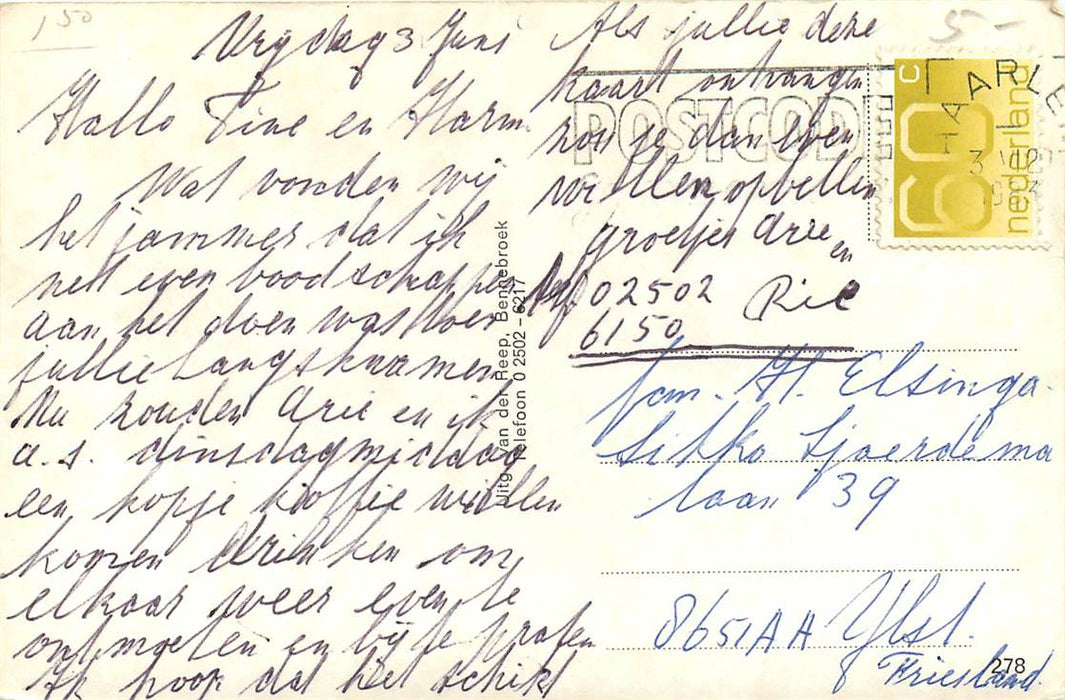 150
Vrydag 3 Juni
Hallo Tine en Harm.
Wat vonden wij
het jammer dat ik
nett even boodschappen
aan het doen was toen
jullie langskwamen
Nu zouden Arie en ik
a.s. dinsdagmiddag
een kopje koffie willen
komen drinken om
elkaar weer even te
ontmoeten en bij te praten
Ik hoop dat het schikt
Als jullie deze
kaart ontvangen
zou je dan even
willen opbellen
groetjes Arie
en
02502 Rie
6150
Uitg. Van der Reep, Bennebroek
Telefoon 0 2502 - 6217
5-
POSTCODE
HAARLEM
60 c
nederland
fam. H. Elsinga.
Sibko Sjoerdema
laan 39
8651AA Ylst.
Friesland.
278